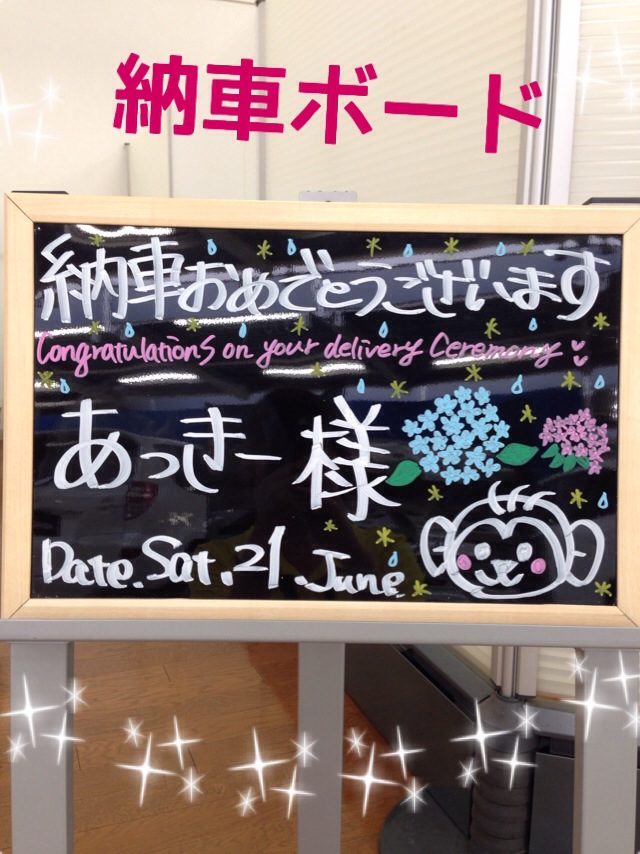 納車ボード
納車おめでとうございます
Congratulations on your delivery Ceremony
あっきー様
Date. Sat. 21. June